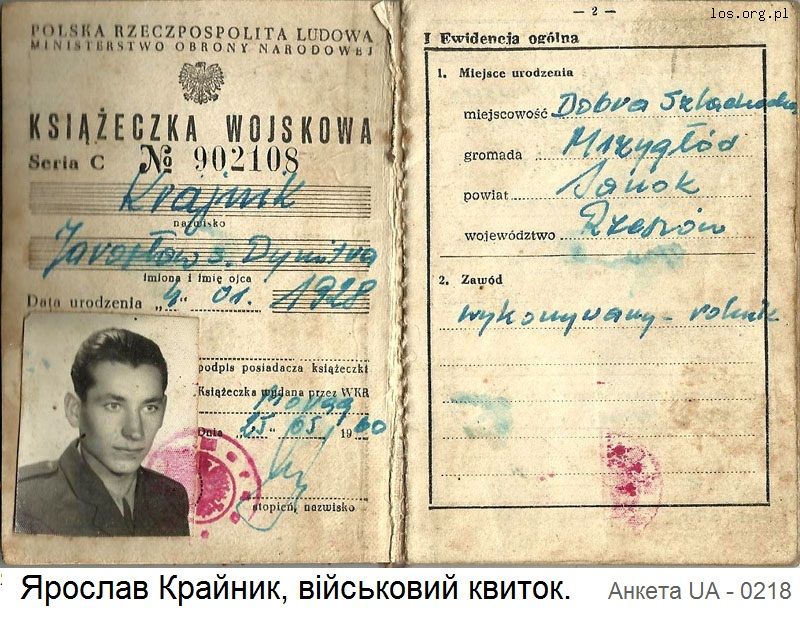 POLSKA RZECZPOSPOLITA LUDOWA
MINISTERSTWO OBRONY NARODOWEJ
KSIĄŻECZKA WOJSKOWA
Seria C № 902108
Krajnik
nazwisko
Jarosław s. Dymitra
imiona i imię ojca
Data urodzenia „4." 01. 1928
podpis posiadacza książeczki
Książeczka wydana przez WKR
Morąg
Dnia „25" 05 1960
stopień, nazwisko
— 2 —
los.org.pl
I Ewidencja ogólna
1. Miejsce urodzenia
miejscowość Dobra Szlachecka
gromada Mrzygłód
powiat Sanok
województwo Rzeszów
2. Zawód
wykonywany - rolnik
Ярослав Крайник, військовий квиток.
Анкета UA - 0218